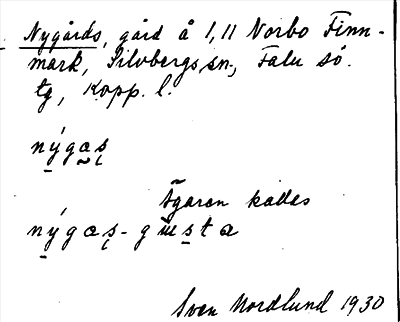 Nygårds, gård å 1,11 Norbo Finn-
mark, Silvbergs sn., Falu sö.
tg, Kopp. l.
nýgas̨
Ägaren kallas
nýgas̨-gusta
Sven Nordlund 1930